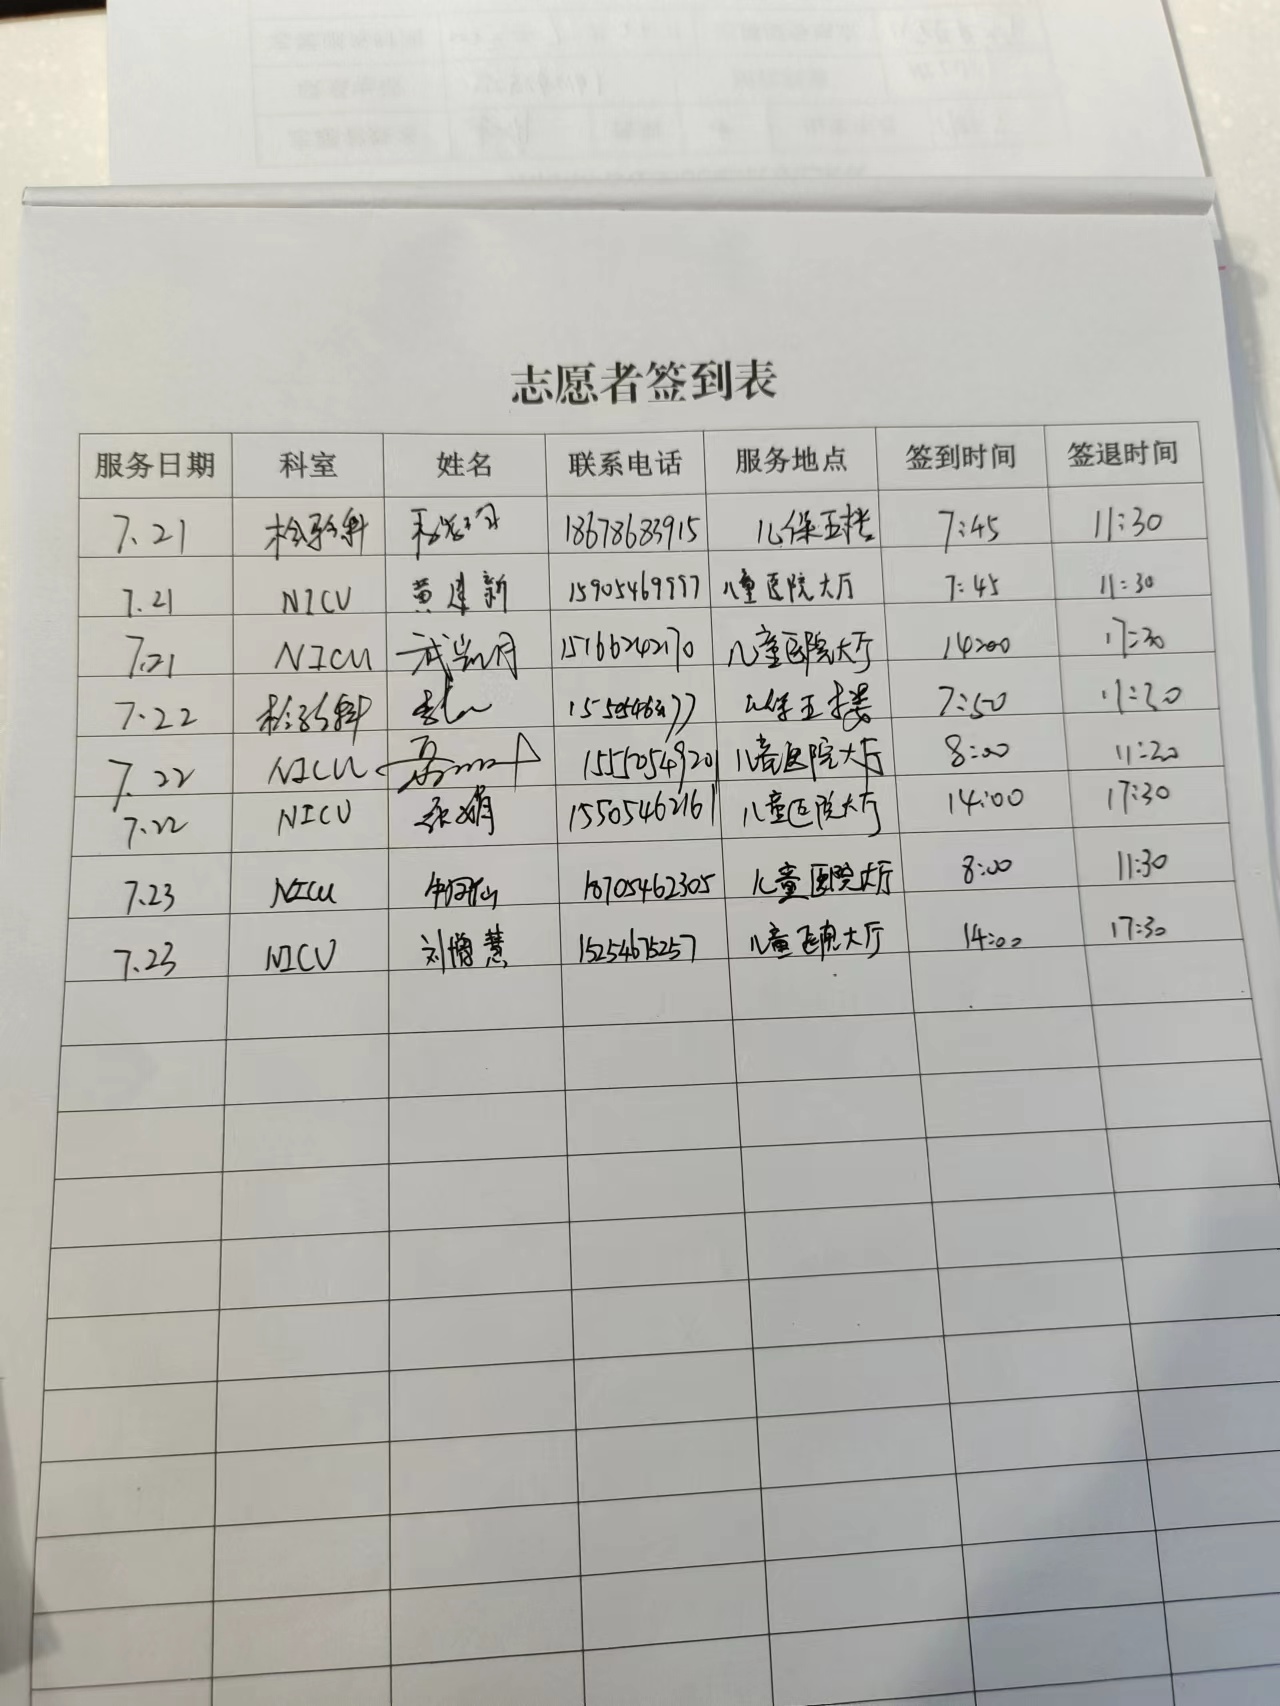 志愿者签到表
服务日期 科室 姓名 联系电话 服务地点 签到时间 签退时间
7.21 检验科 18678683915 儿保五楼 7:45 11:30
7.21 NICU 黄建新 15905469997 儿童医院大厅 7:45 11:30
7.21 NICU 武尝月 15166242170 儿童医院大厅 14:00 17:30
7.22 检验科 儿保五楼 7:50 11:30
7.22 NICU 15550549201 儿童医院大厅 8:00 11:30
7.22 NICU 张娟 15505462161 儿童医院大厅 14:00 17:30
7.23 NICU 18705462305 儿童医院大厅 8:00 11:30
7.23 NICU 刘增慧 15254675257 儿童医院大厅 14:00 17:30